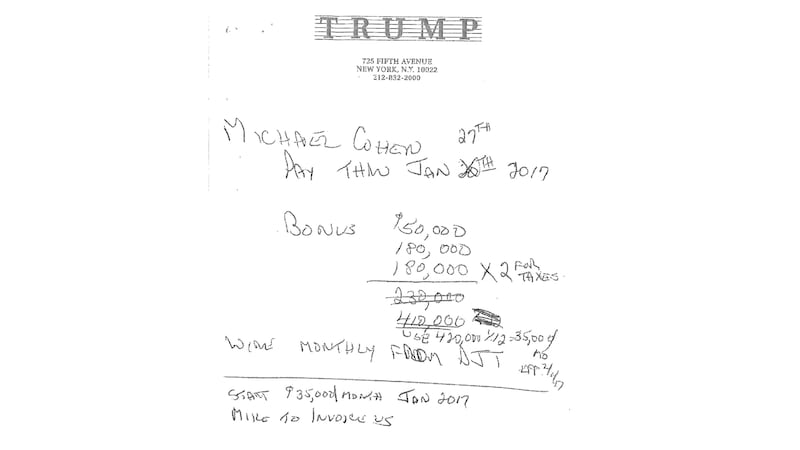 TRUMP
725 FIFTH AVENUE
NEW YORK, N.Y. 10022
212-832-2000
MICHAEL COHEN
27TH
PAY THRU JAN 26TH 2017
BONUS $50,000
180,000
180,000 X 2 FOR TAXES.
230,000
410,000
USE 420,000 1/12 = 35,000/
MO
WIRE MONTHLY FROM DJT
EFF. 2/1/17
START $35,000/MONTH JAN 2017
MIKE TO INVOICE US